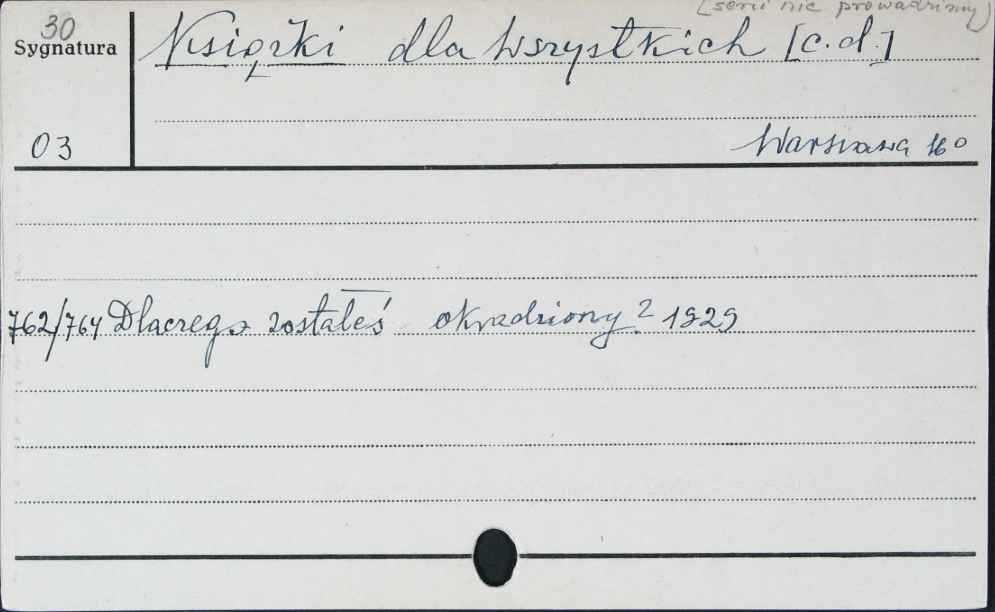 (serii nie prowadzimy)
30
Sygnatura
Książki dla wszystkich [c.d.]
03
Warszawa 16°
762/764 Dlaczego zostałeś okradziony? 1929